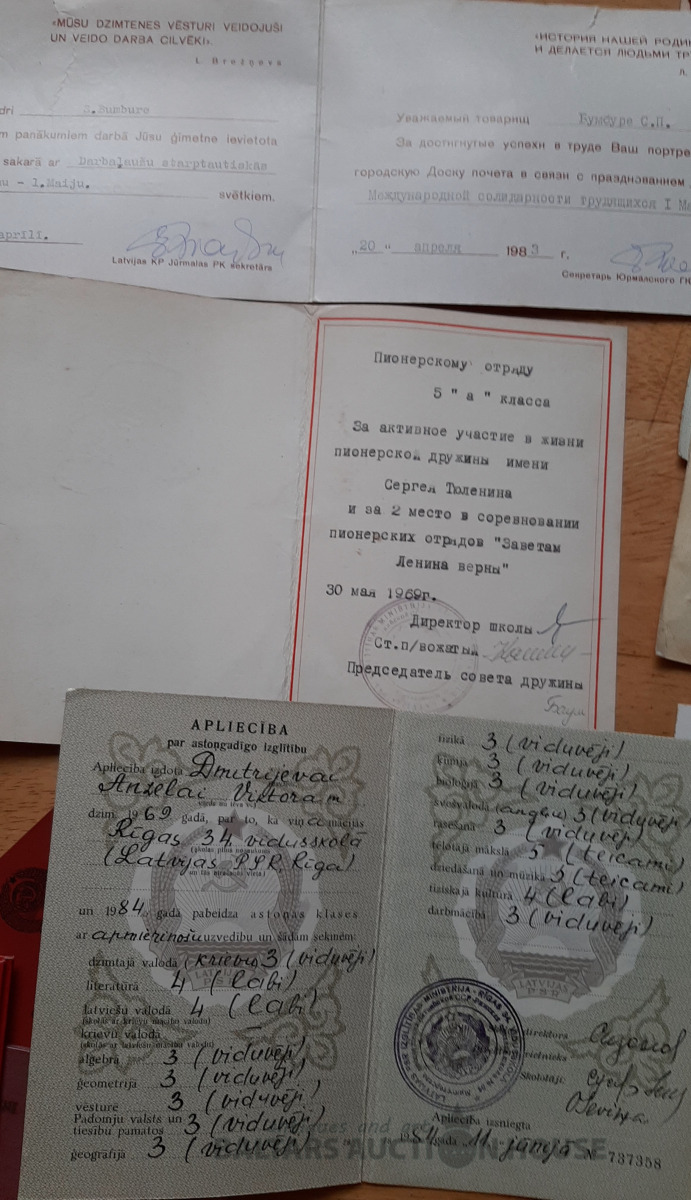 «MŪSU DZIMTENES VĒSTURI VEIDOJUŠI
UN VEIDO DARBA CILVĒKI».
L. Brežņevs
S.Bumbure
panākumiem darbā Jūsu ģimetne ievietota
sakarā ar Darbaļaužu starptautiskās
- I.Maiju. svētkiem.
aprīlī.
Latvijas KP Jūrmalas PK sekretārs
«ИСТОРИЯ НАШЕЙ
И ДЕЛАЕТСЯ ЛЮДЬМИ
Л.
Уважаемый товарищ Бумбуре С.П.
За достигнутые успехи в труде Ваш
городскую Доску почета в связи с празднованием
Международной солидарности трудящихся I
„20" апреля 1983 г.
Секретарь Юрмальского
Пионерскому отряду
5 "а" класса
За активное участие в жизни
пионерской дружины имени
Сергея Тюленина
и за 2 место в соревновании
пионерских отрядов "Заветам
Ленина верны"
30 мая 1969г.
Директор школы
Ст.п/вожатый
Председатель совета дружины
APLIECĪBA
par astoņgadīgo izglītību
Apliecība izdota Dmitrijevai
Anželai Viktora m.
dzim. 1969 gadā, par to, ka viņa mācījusies
Rīgas 34. vidusskolā
(Latvijas PSR, Rīgā)
un 1984. gadā pabeidza astoņas klases
ar apmierinošu uzvedību un šādām sekmēm:
dzimtajā valodā (krievu) 3 (viduvēji)
literatūrā 4 (labi)
latviešu valodā 4 (labi)
(skolās ar krievu mācību valodu)
krievu valodā –
(skolās ar latviešu mācību valodu)
algebrā 3 (viduvēji)
ģeometrijā 3 (viduvēji)
vēsturē 3 (viduvēji)
Padomju valsts un
tiesību pamatos 3 (viduvēji)
ģeogrāfijā 3 (viduvēji)
fizikā 3 (viduvēji)
ķīmijā 3 (viduvēji)
bioloģijā 3 (viduvēji)
svešvalodā (angļu) 3 (viduvēji)
rasēšanā 3 (viduvēji)
tēlotājā mākslā 5 (teicami)
dziedāšanā un mūzikā 5 (teicami)
fiziskajā kultūrā 4 (labi)
darbmācībā 3 (viduvēji)
LATVIJAS
PSR
direktora
vietnieks
Skolotāji:
Apliecība izsniegta
1984. gada 11. jūnijā № 737358
BALTARS AUCTION HOUSE